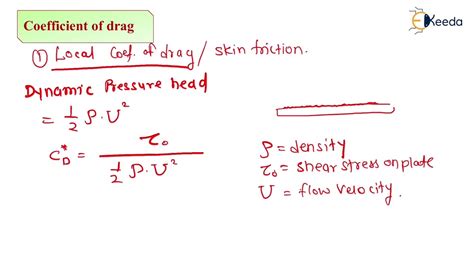 Coefficient of drag
EKeeda
① Local Coef. of drag / skin friction.
Dynamic Pressure head
= 1/2 ρ. U²
C_D* = τ₀ / (1/2 ρ. U²)
ρ = density
τ₀ = shear stress on plate
U = flow velocity.